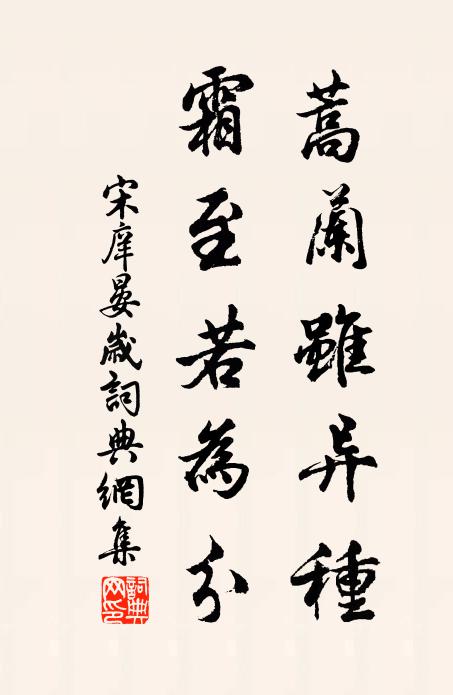 蒿蘭雖异種
霜至若為分
宋庠晏歲詞典網集
詞典網印